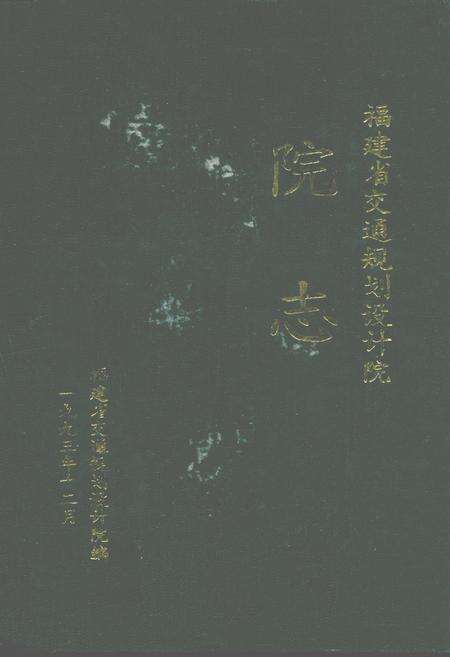 福建省交通规划设计院
院志
福建省交通规划设计院编
一九九三年十二月